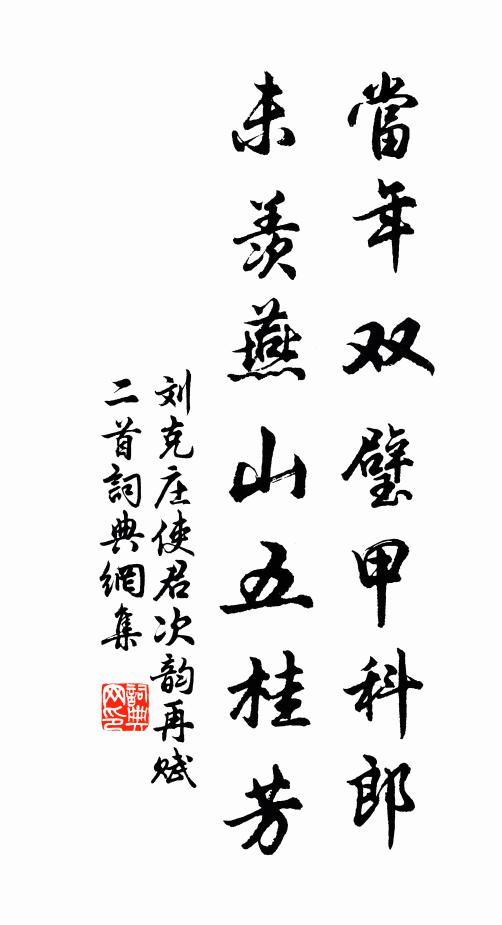 當年双璧甲科郎
未羨燕山五桂芳
刘克庄使君次韵再赋
二首詞典網集
詞典网印